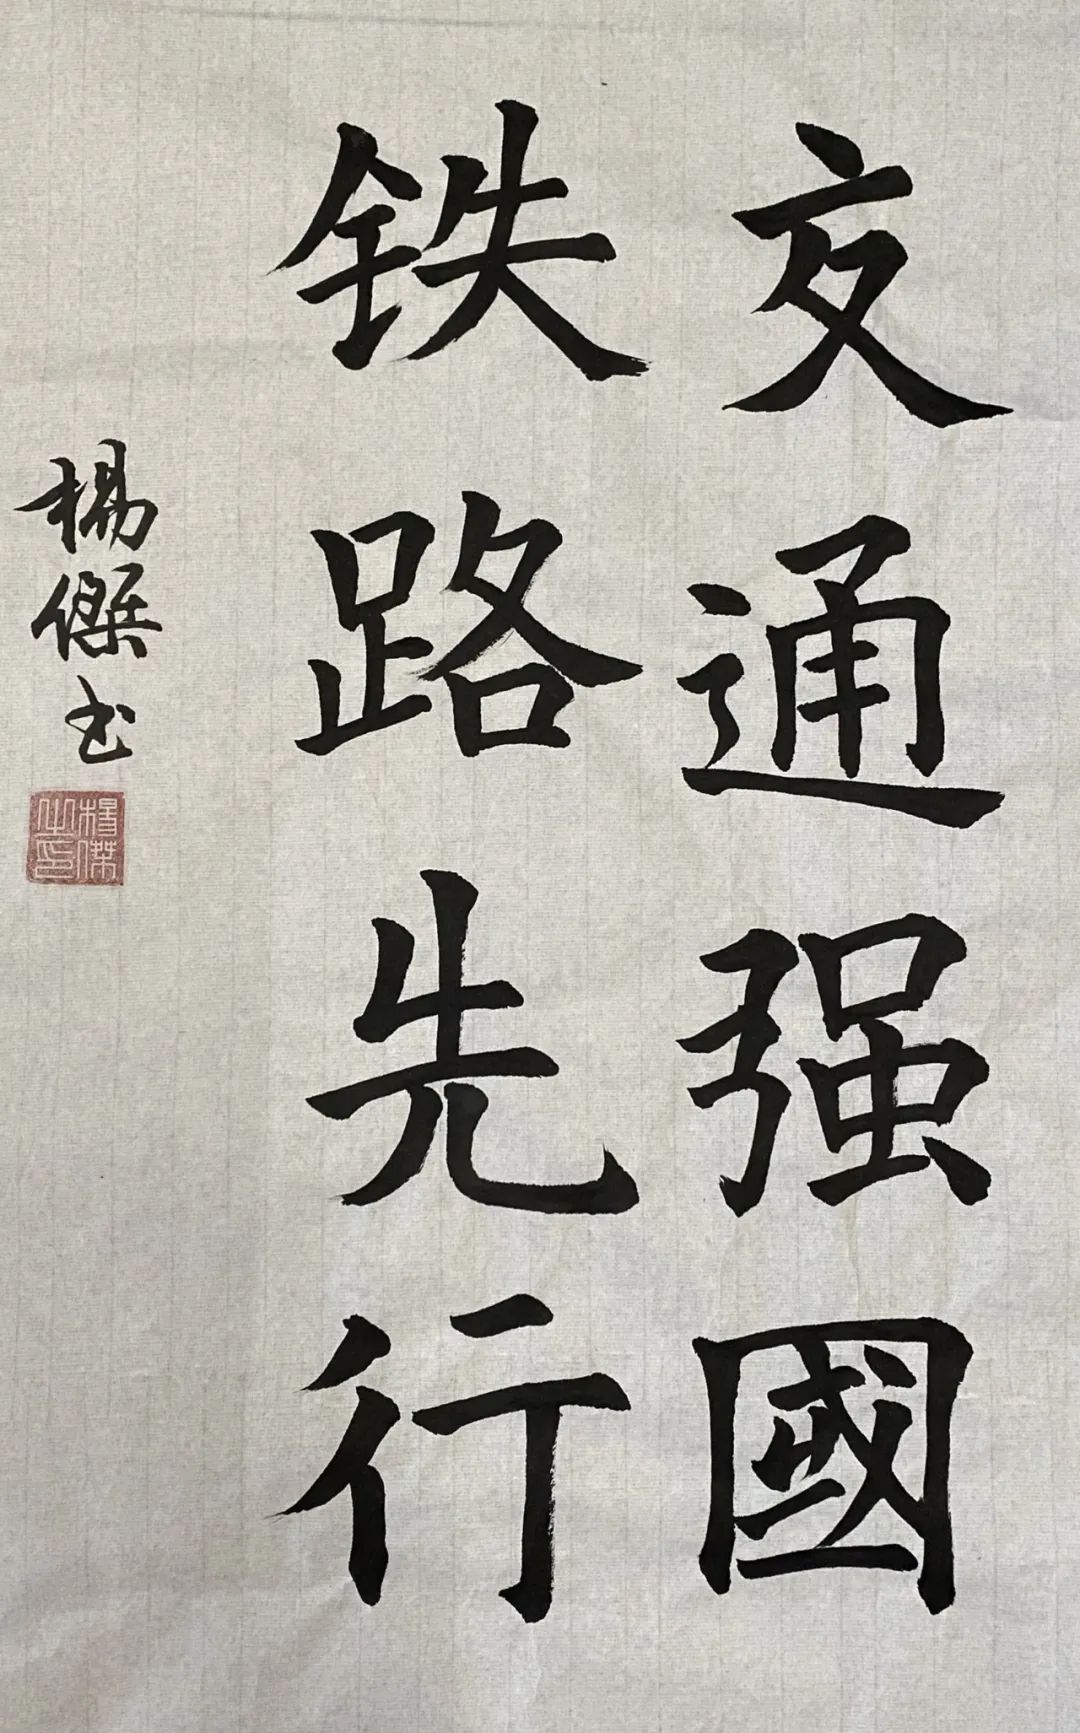 交通强國
铁路先行
楊傑书
楊傑之印